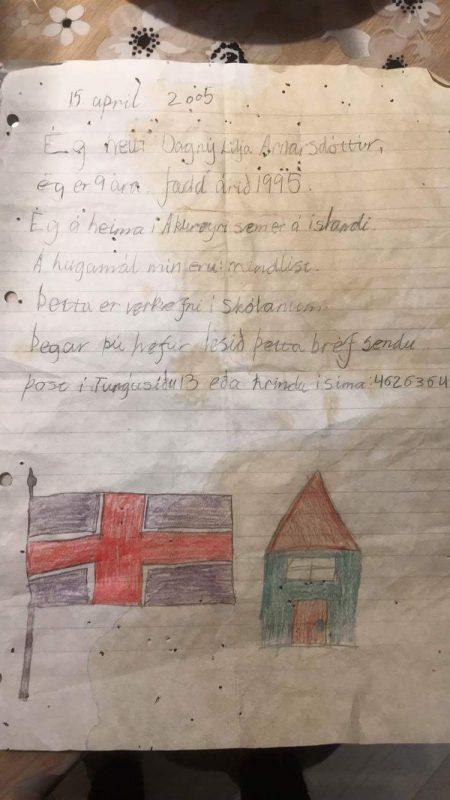 15 april 2005
Ég heiti Dagný Lilja Arnarsdóttir,
ég er 9 ára. fædd árið 1995.
Ég á heima í Akureyri sem er á íslandi
Áhugamál mín eru: mindlist.
Þetta er verkefni í skólanum.
Þegar þú hefur lesið þetta bréf sendu
póst í Tungusíðu 13 eða hrindu í síma: 4626364